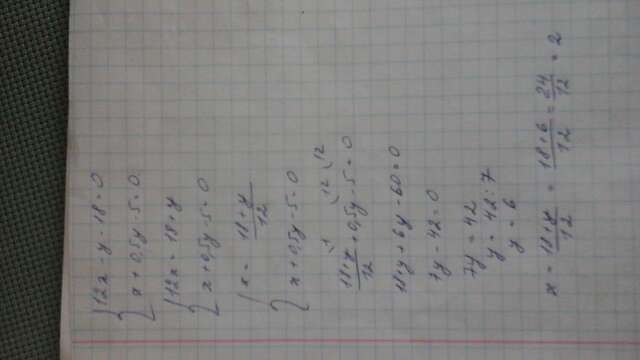 {12x - y - 18 = 0
{x + 0,5y - 5 = 0
{12x = 18 + y
{x + 0,5y - 5 = 0
{x = (18 + y)/12
{x + 0,5y - 5 = 0
(18 + y)/12 \1 + 0,5y \12 - 5 \12 = 0
18 + y + 6y - 60 = 0
7y - 42 = 0
7y = 42
y = 42 : 7
y = 6
x = (18 + y)/12 = (18 + 6)/12 = 24/12 = 2